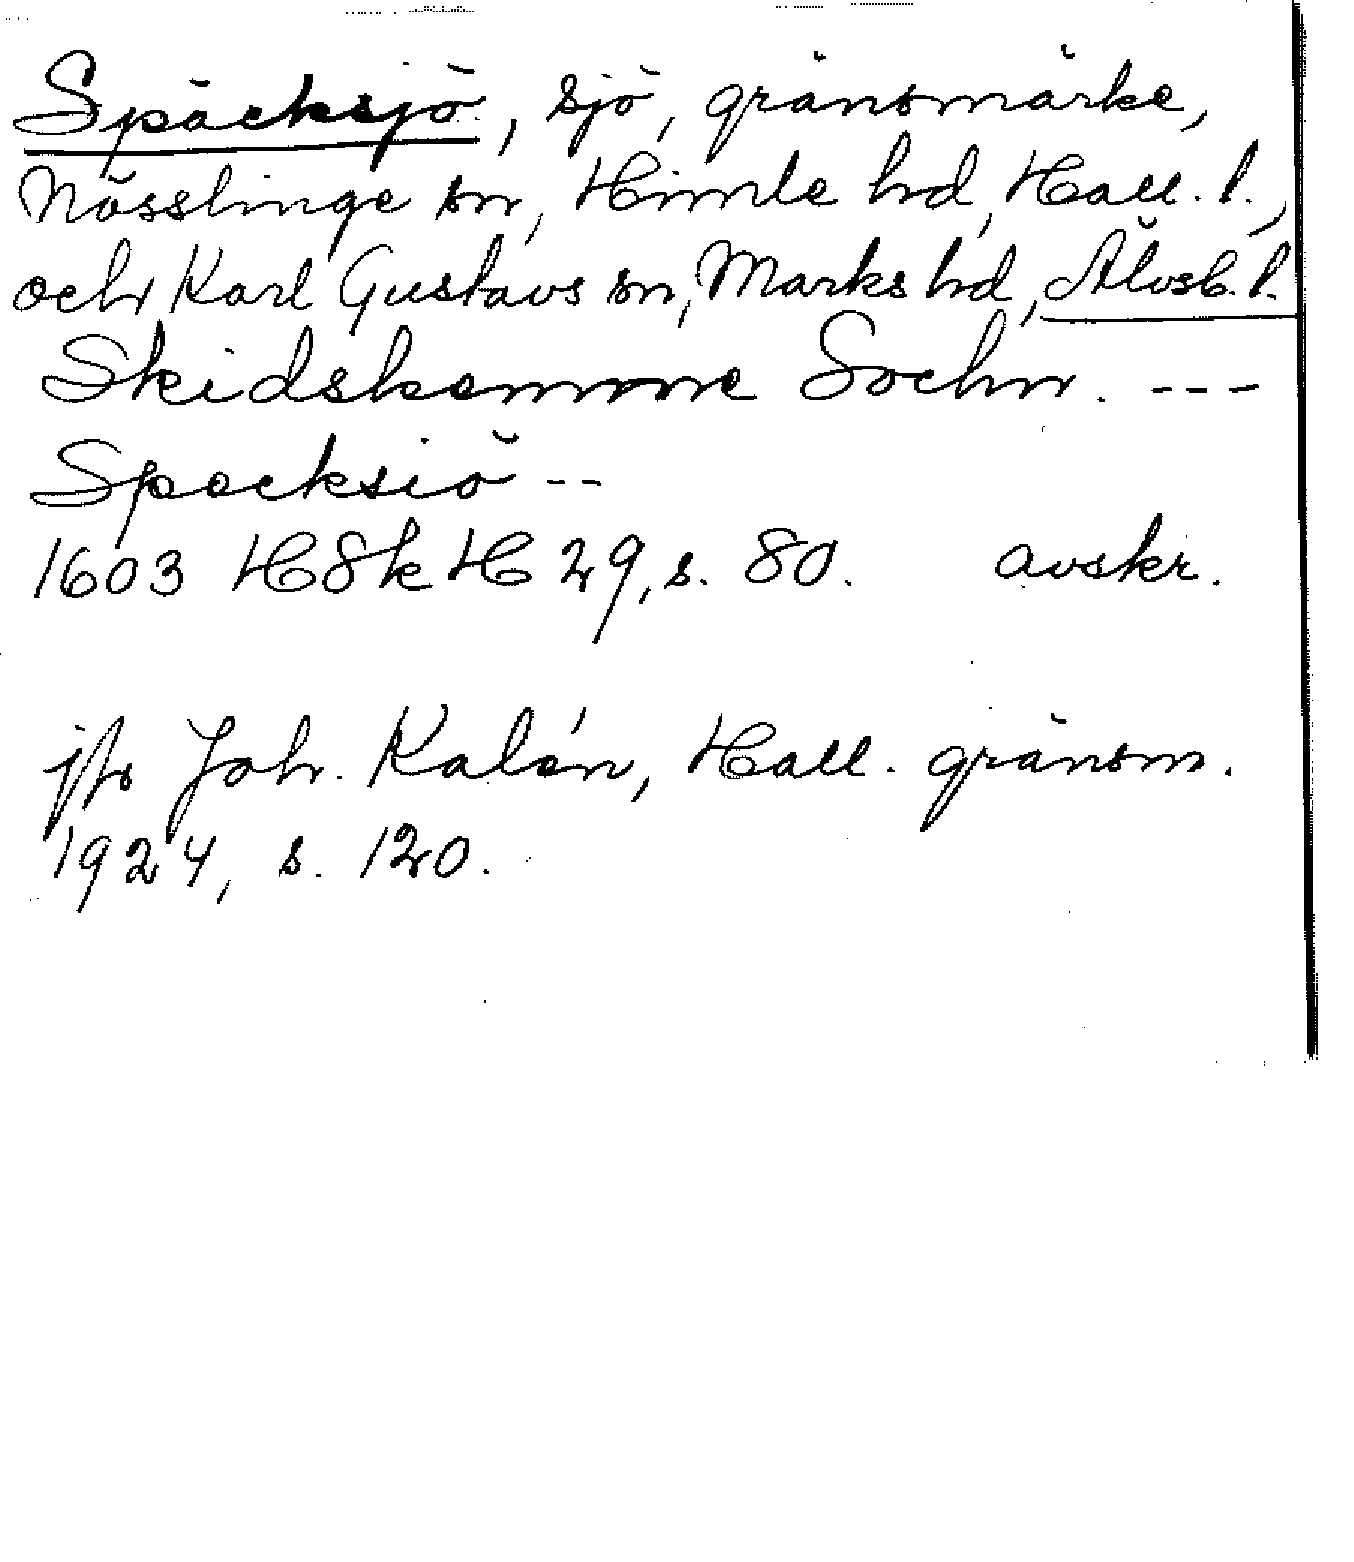 Späcksjö, sjö, gränsmärke,
Nösslinge sn, Himle hd, Hall. l.,
och Karl Gustavs sn, Marks hd, Älvsb. l.
Skidskamme Sochn. ---
Spacksiö --
1603 HSkH 29, s. 80. avskr.
jfr Joh. Kalén, Hall. gränsm.
1924, s. 120.